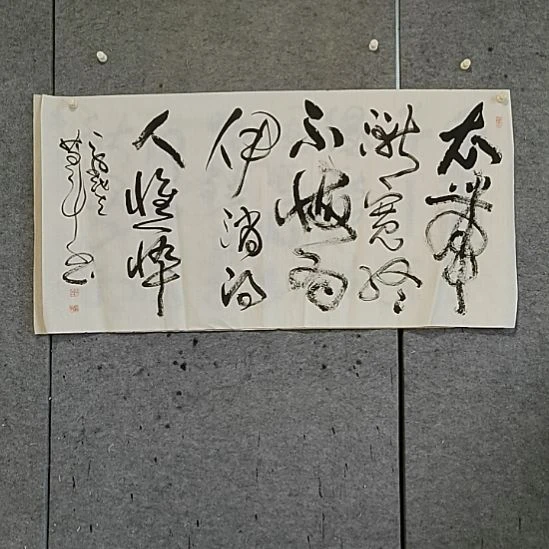 衣带
渐宽终
不悔为
伊消得
人憔悴